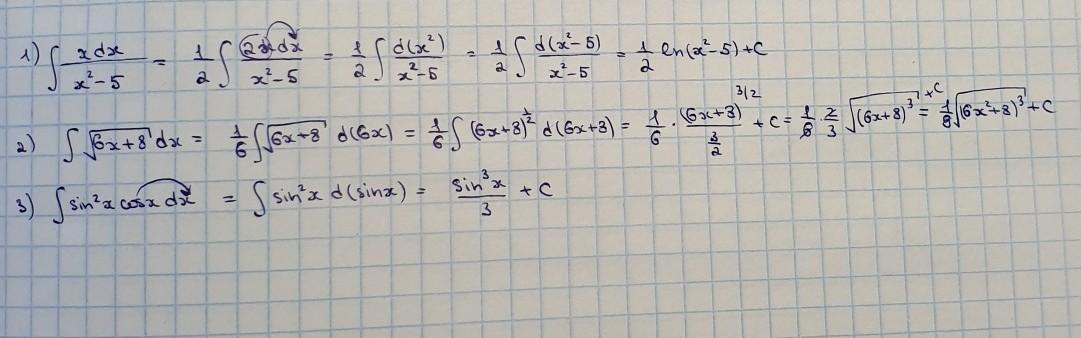 1) ∫ x dx / (x² - 5) = 1/2 ∫ 2x dx / (x² - 5) = 1/2 ∫ d(x²) / (x² - 5) = 1/2 ∫ d(x² - 5) / (x² - 5) = 1/2 ln(x² - 5) + C
2) ∫ √(6x + 8) dx = 1/6 ∫ √(6x + 8) d(6x) = 1/6 ∫ (6x + 8)^(1/2) d(6x + 8) = 1/6 · (6x + 8)^(3/2) / (3/2) + C = 1/6 · 2/3 √((6x + 8)³) + C = 1/9 √((6x² + 8)³) + C
3) ∫ sin² x cos x dx = ∫ sin² x d(sin x) = sin³ x / 3 + C